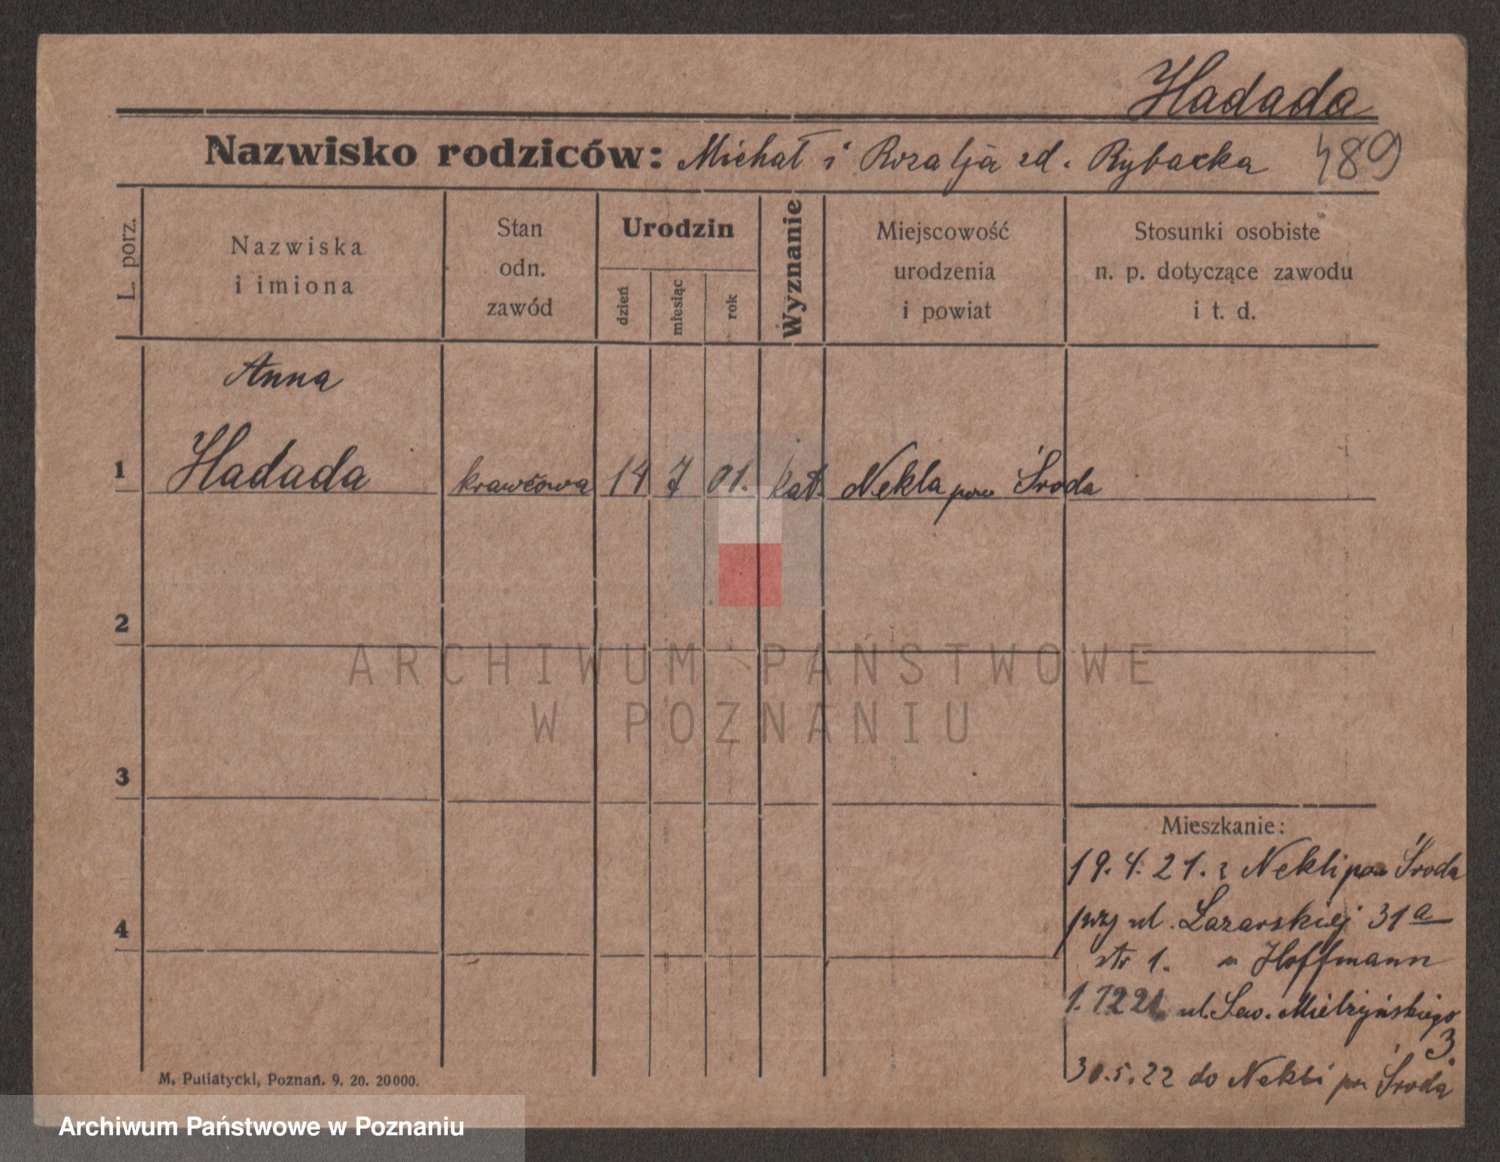 Hadada
Nazwisko rodziców: Michał i Rozalja zd. Rybacka 489
L. porz.
Nazwiska
i imiona
Stan
odn.
zawód
Urodzin
dzień
miesiąc
rok
Wyznanie
Miejscowość
urodzenia
i powiat
Stosunki osobiste
n. p. dotyczące zawodu
i t. d.
Anna
1 Hadada krawcowa 14 7 01. kat. Nekla pow Środa
2
ARCHIWUM PAŃSTWOWE
W POZNANIU
3
Mieszkanie:
19. 4. 21. z Nekli pow Środa
4
przy ul. Łazarskiej 31a
str 1. u Hoffmann
1. 12 21 ul. Sew. Mielżyńskiego
3.
30. 5. 22 do Nekli pow Środa
M. Putiatycki, Poznań. 9. 20. 20000.
Archiwum Państwowe w Poznaniu